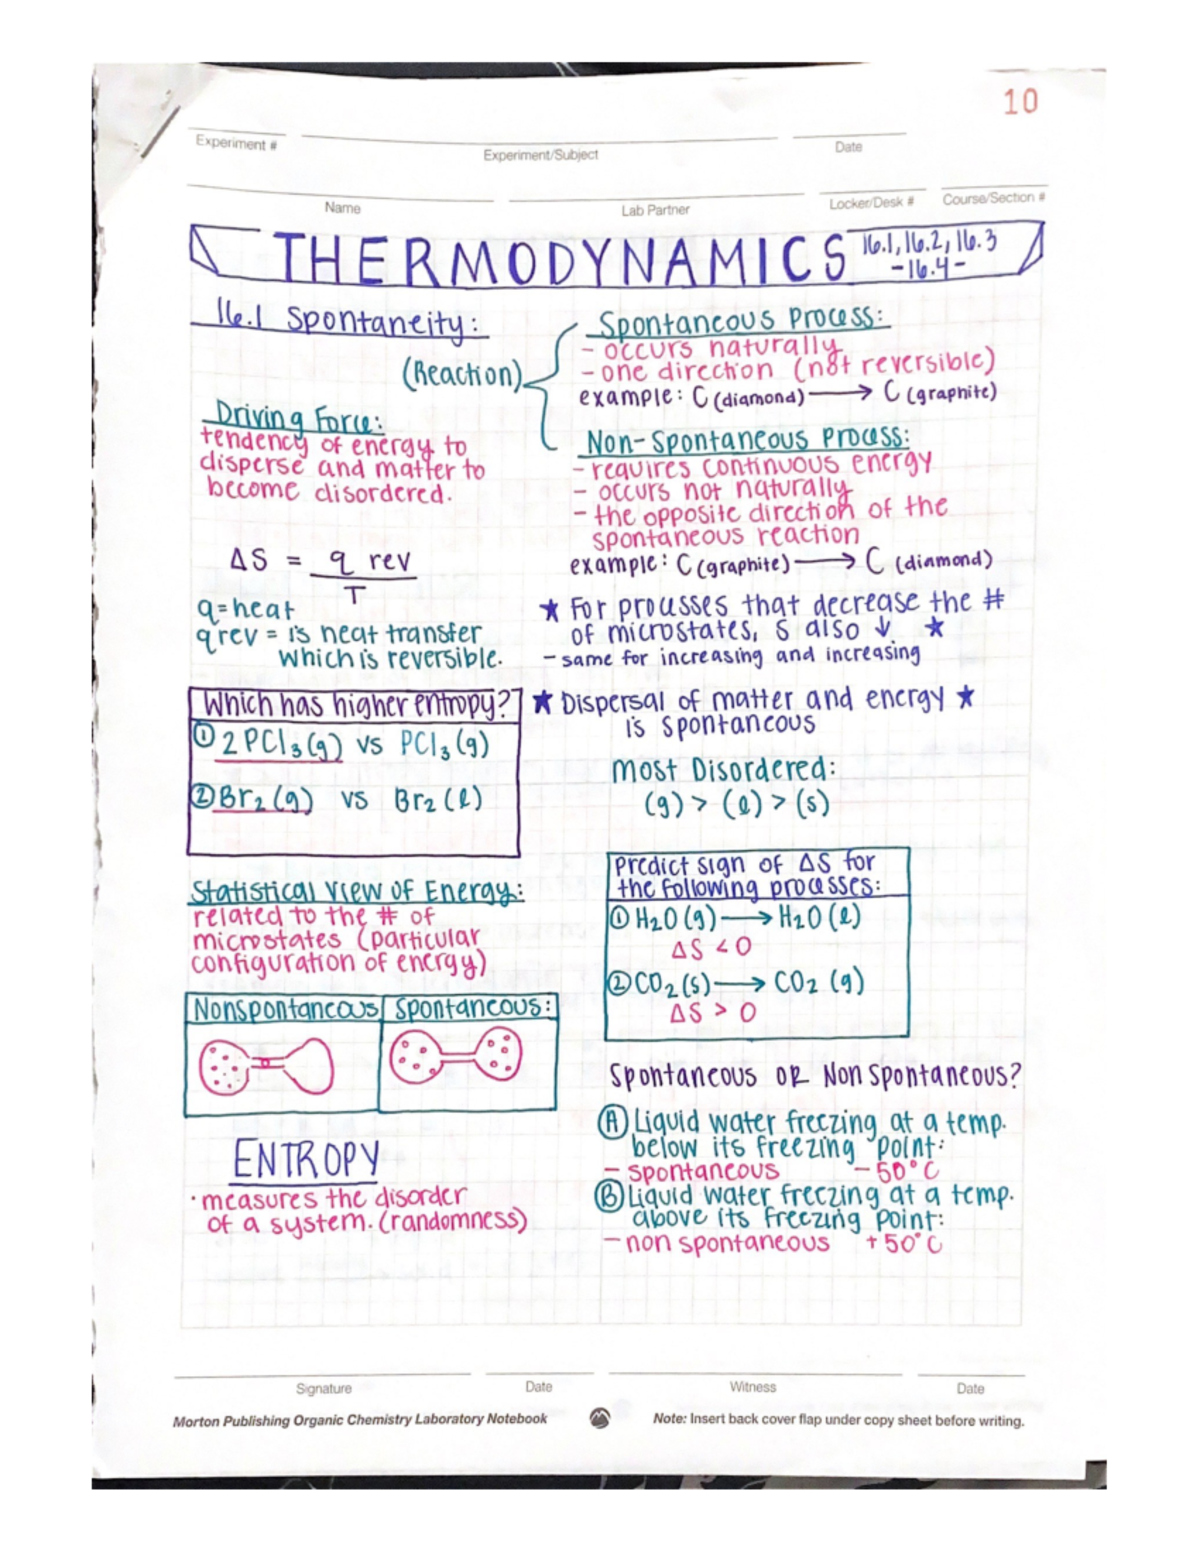 10
Experiment #
Experiment/Subject
Date
Name
Lab Partner
Locker/Desk #
Course/Section #
THERMODYNAMICS 16.1, 16.2, 16.3
-16.4-
16.1 Spontaneity:
(Reaction)
Spontaneous Process:
- occurs naturally
- one direction (not reversible)
example: C (diamond) ⟶ C (graphite)
Non-Spontaneous Process:
- requires continuous energy
- occurs not naturally
- the opposite direction of the
spontaneous reaction
example: C (graphite) ⟶ C (diamond)
Driving Force:
tendency of energy to
disperse and matter to
become disordered.
ΔS = q rev
T
q = heat
q rev = is heat transfer
which is reversible.
★ For processes that decrease the #
of microstates, S also ↓. ★
- same for increasing and increasing
★ Dispersal of matter and energy ★
is spontaneous
Which has higher entropy?
① 2 PCl3 (g) vs PCl3 (g)
② Br2 (g) vs Br2 (l)
most Disordered:
(g) > (l) > (s)
Statistical View of Energy:
related to the # of
microstates (particular
configuration of energy)
Nonspontaneous
Spontaneous:
ENTROPY
· measures the disorder
of a system. (randomness)
Predict sign of ΔS for
the following processes:
① H2O (g) ⟶ H2O (l)
ΔS < 0
② CO2 (s) ⟶ CO2 (g)
ΔS > 0
Spontaneous OR Non Spontaneous?
Ⓐ Liquid water freezing at a temp.
below its freezing point:
- spontaneous -50°C
Ⓑ Liquid water freezing at a temp.
above its freezing point:
- non spontaneous +50°C
Signature
Date
Witness
Date
Morton Publishing Organic Chemistry Laboratory Notebook
Note: Insert back cover flap under copy sheet before writing.